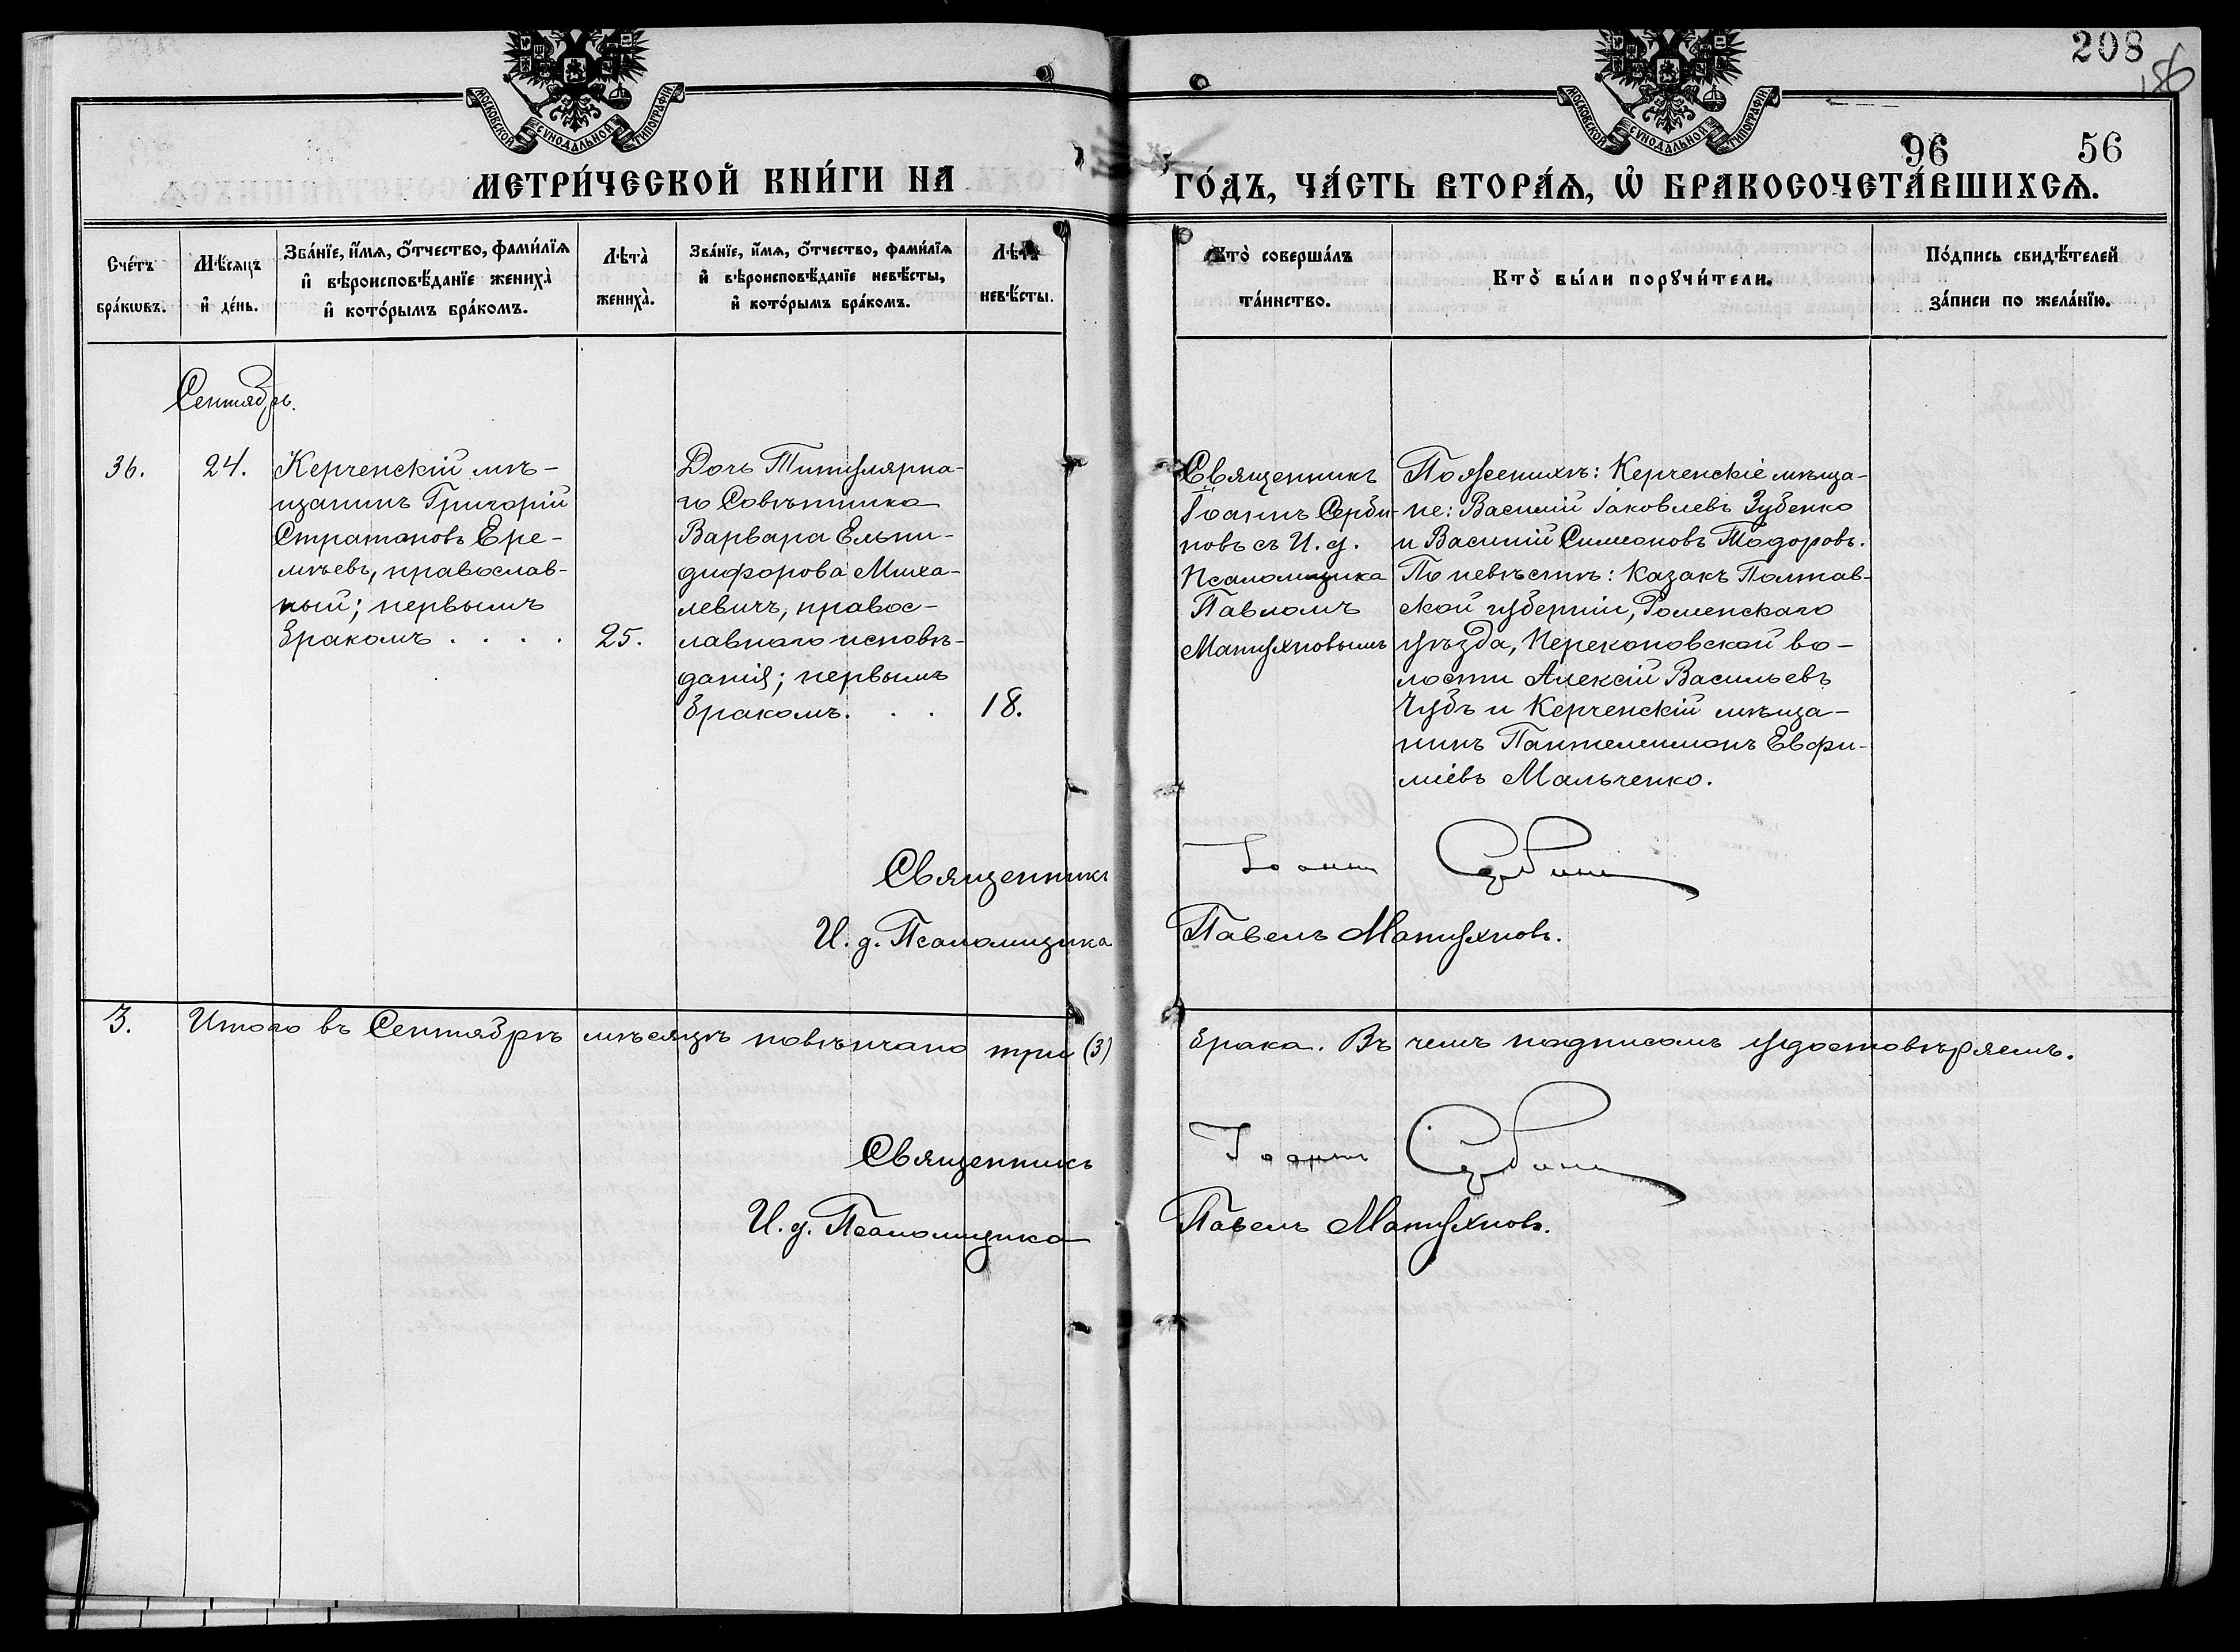 208
186
96 56
МОСКОВСКОЙ СѴНОДАЛЬНОЙ ТИПОГРАФІИ
МОСКОВСКОЙ СѴНОДАЛЬНОЙ ТИПОГРАФІИ
МЕТРИ́ЧЕСКОЙ КНИ́ГИ НА
ГО́ДЪ, ЧА́СТЬ ВТОРА́Ѧ, Ѡ҆ БРАКОСОЧЕТА́ВШИХСѦ.
Сче́тъ
бра́кѡвъ.
Мѣ́сяцъ
и҆ де́нь.
Зва́нїе, и҆́мѧ, ѻ҆́тчество, фами́лїѧ
и҆ вѣроисповѣ́данїе женихà
и҆ кото́рымъ бра́комъ.
Лѣтà
женихà.
Зва́нїе, и҆́мѧ, ѻ҆́тчество, фами́лїѧ
и҆ вѣроисповѣ́данїе невѣ́сты,
и҆ кото́рымъ бра́комъ.
Лѣтà
невѣ́сты.
Кто̀ совершáлъ
тáинство.
Кто̀ бы́ли порꙋчи́тели.
По́дпись свидѣ́телей
за́писи по желáнїю.
Сентябрь.
36.
24.
Керченскій мѣ-
щанинъ Григорій
Стратоновъ Ере-
мѣевъ, православ-
ный; первымъ
бракомъ . . . .
25.
Дочь Титулярна-
го Совѣтника
Варвара Ельпи-
дифорова Миха-
левичъ, правос-
лавнаго исповѣ-
данія; первымъ
бракомъ. . .
18.
Священникъ
Іоаннъ Серби-
новъ съ И. д.
Псаломщика
Павломъ
Матухновымъ
По женихѣ: Керченскіе мѣща-
не: Василій Іаковлевъ Зубенко
и Василій Симеоновъ Тодоровъ.
По невѣстѣ: Казакъ Полтав-
ской губерніи, Роменскаго
уѣзда, Перекоповской во-
лости Алексій Васильевъ
Чубъ и Керченскій мѣща-
нинъ Пантелеимонъ Евфи-
міевъ Мальченко.
Священникъ Іоаннъ Сербиновъ
И. д. Псаломщика Павелъ Матухновъ.
3. Итого въ Сентябрѣ мѣсяцѣ повѣнчано три (3) брака. Въ чемъ подписомъ удостовѣряемъ.
Священникъ Іоаннъ Сербиновъ
И. д. Псаломщика Павелъ Матухновъ.